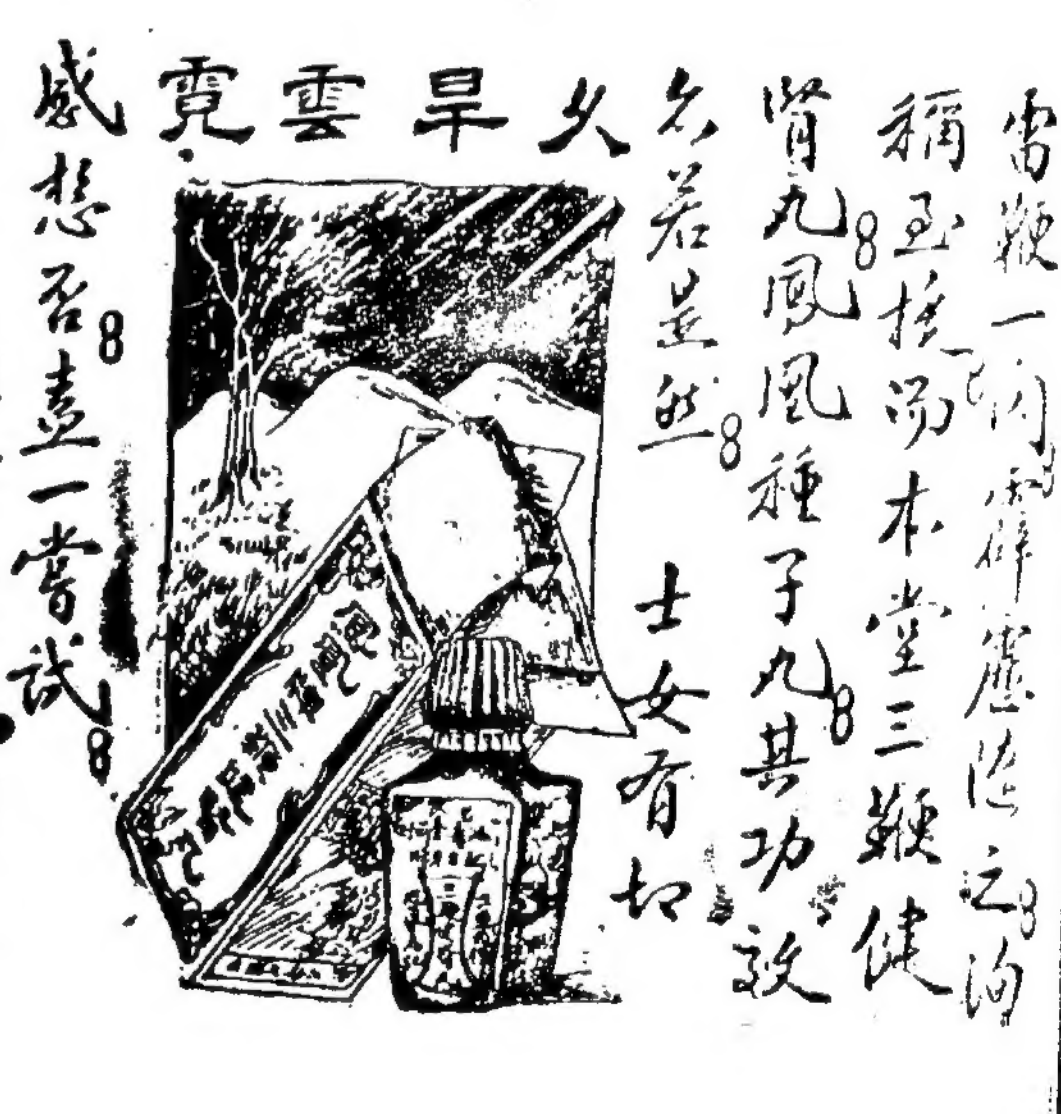 久旱雲霓
雷鞭一閃霹靂隨之洵
稱至捷而本堂三鞭健
腎丸鳳凰種子丸其功效
亦若是然 士女有切
感想否盍一嘗試